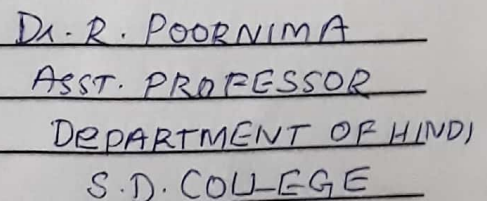 Dr. R. POORNIMA
ASST. PROFESSOR
DePARTMENT OF HINDI
S.D. COLLEGE